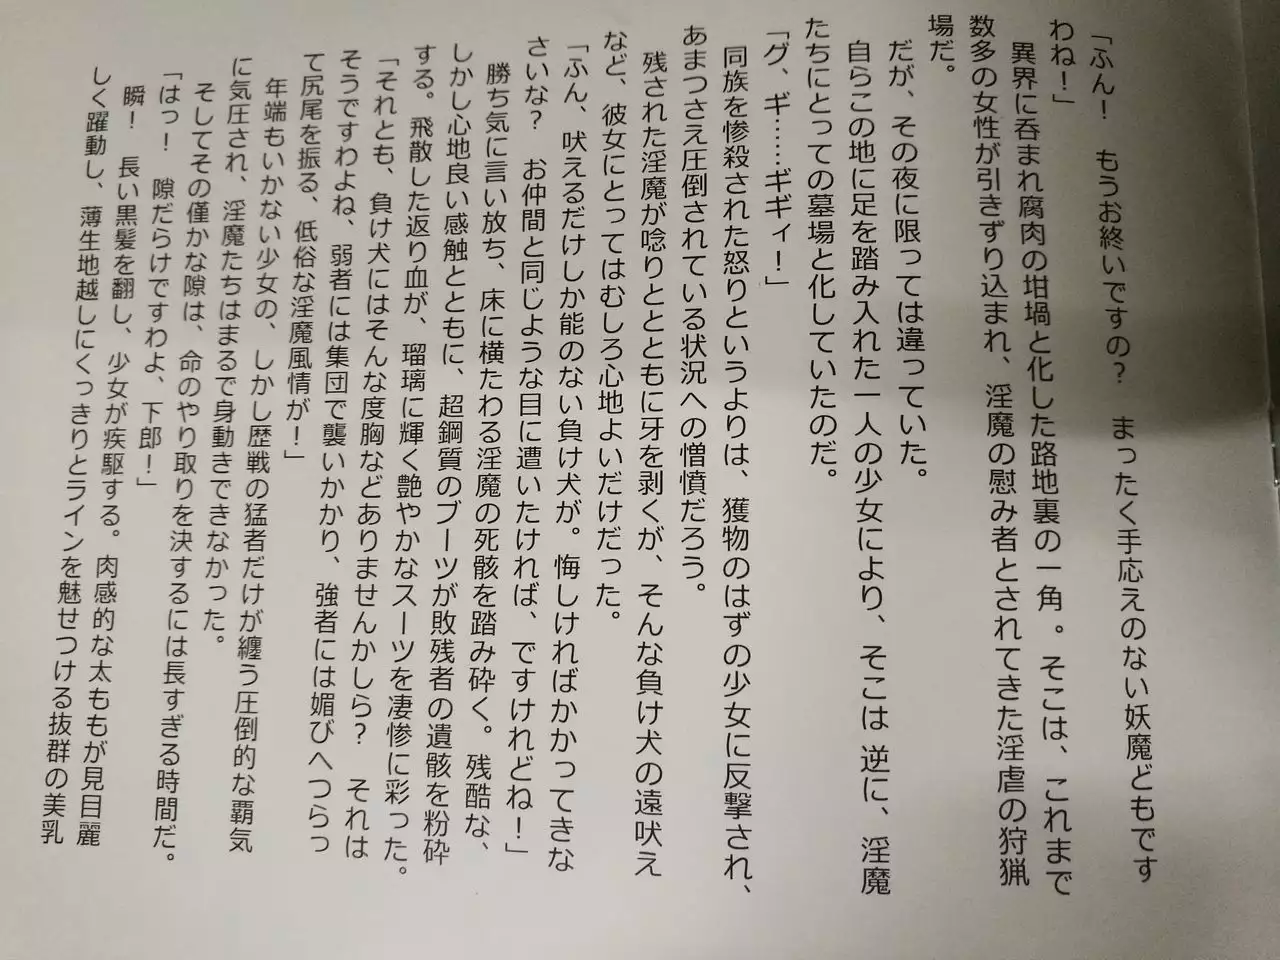 「ふん！　もうお終いですの？　まったく手応えのない妖魔どもです
わね！」
　異界に呑まれ腐肉の坩堝と化した路地裏の一角。そこは、これまで
数多の女性が引きずり込まれ、淫魔の慰み者とされてきた淫虐の狩猟
場だ。
　だが、その夜に限っては違っていた。
　自らこの地に足を踏み入れた一人の少女により、そこは 逆に、淫魔
たちにとっての墓場と化していたのだ。
「グ、ギ……ギギィ！」
　同族を惨殺された怒りというよりは、獲物のはずの少女に反撃され、
あまつさえ圧倒されている状況への憎憤だろう。
　残された淫魔が唸りとともに牙を剥くが、そんな負け犬の遠吠え
など、彼女にとってはむしろ心地よいだけだった。
「ふん、吠えるだけしか能のない負け犬が。悔しければかかってきな
さいな？　お仲間と同じような目に遭いたければ、ですけれどね！」
　勝ち気に言い放ち、床に横たわる淫魔の死骸を踏み砕く。残酷な、
しかし心地良い感触とともに、超鋼質のブーツが敗残者の遺骸を粉砕
する。飛散した返り血が、瑠璃に輝く艶やかなスーツを凄惨に彩った。
「それとも、負け犬にはそんな度胸などありませんかしら？　それは
そうですわよね、弱者には集団で襲いかかり、強者には媚びへつらっ
て尻尾を振る、低俗な淫魔風情が！」
　年端もいかない少女の、しかし歴戦の猛者だけが纏う圧倒的な覇気
に気圧され、淫魔たちはまるで身動きできなかった。
　そしてその僅かな隙は、命のやり取りを決するには長すぎる時間だ。
「はっ！　隙だらけですわよ、下郎！」